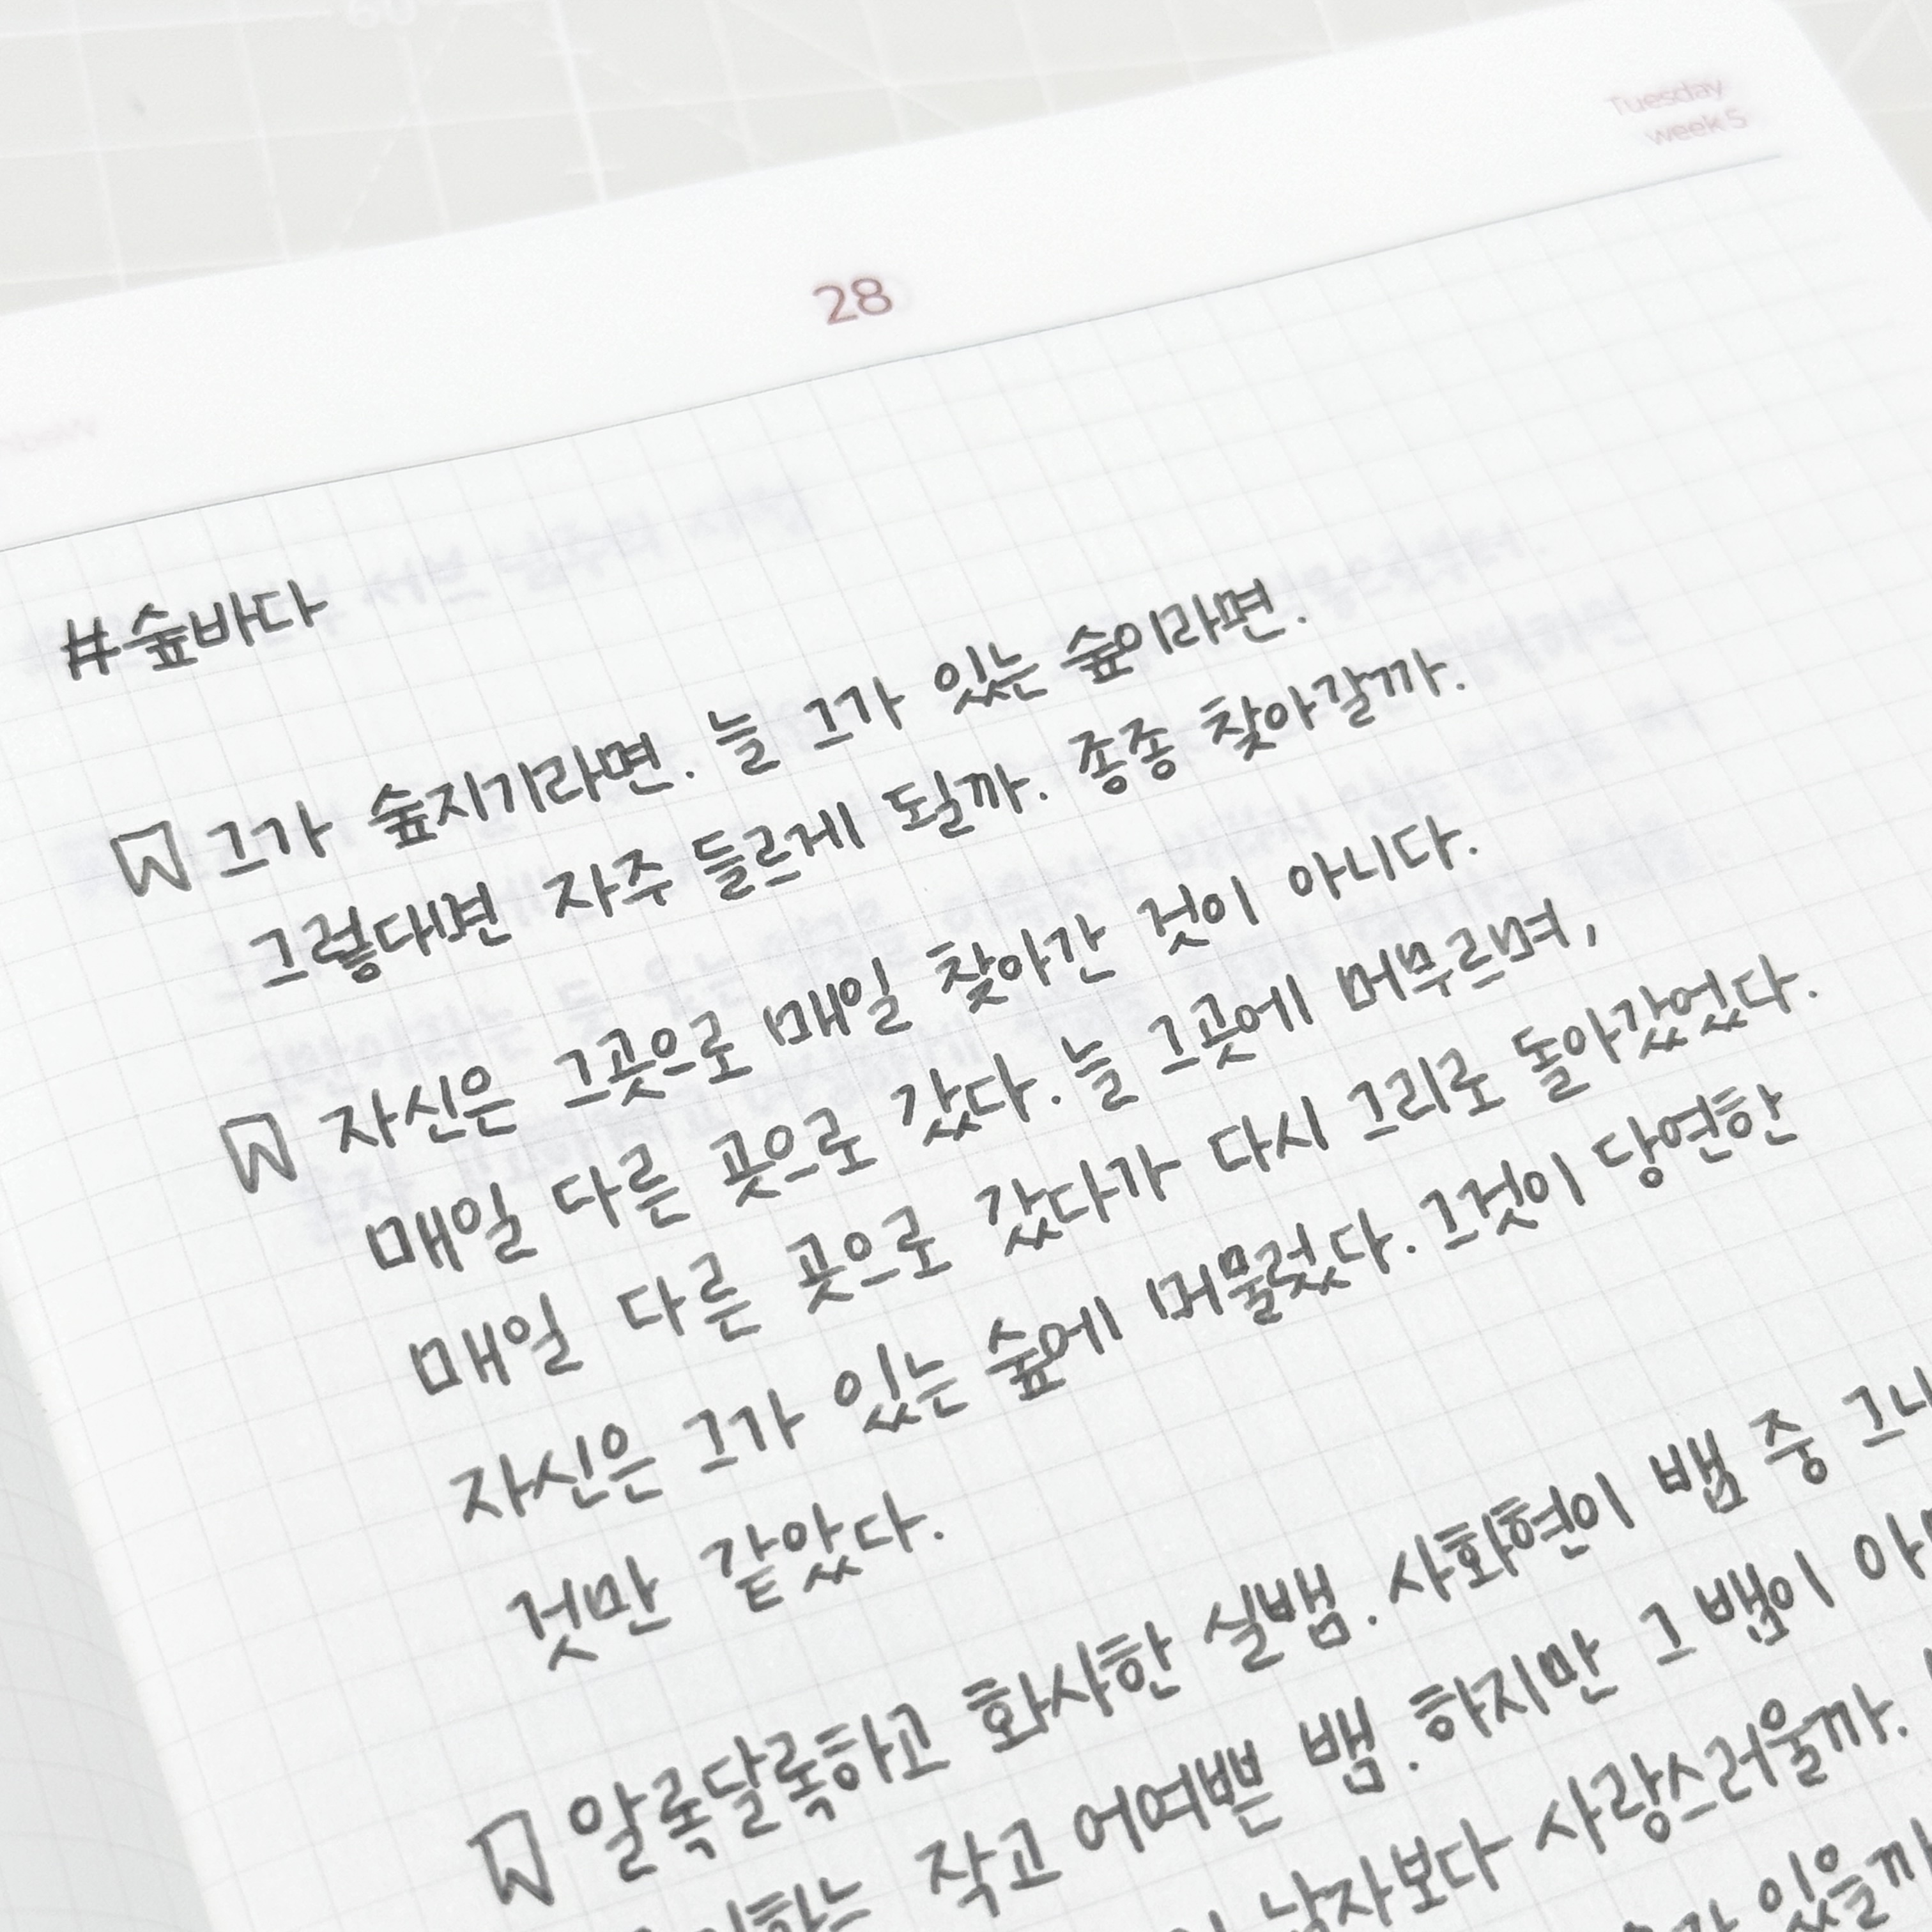 Tuesday
week 5
28
#숲바다
그가 숲지기라면. 늘 그가 있는 숲이라면.
그렇다면 자주 들르게 될까. 종종 찾아갈까.
자신은 그곳으로 매일 찾아간 것이 아니다.
매일 다른 곳으로 갔다. 늘 그곳에 머무르며,
매일 다른 곳으로 갔다가 다시 그리로 돌아갔었다.
자신은 그가 있는 숲에 머물렀다. 그것이 당연한
것만 같았다.
알록달록하고 화사한 실뱀. 사화현이 뱀 중
작고 어여쁜 뱀. 하지만 그 뱀이
남자보다 사랑스러울까.
있을까